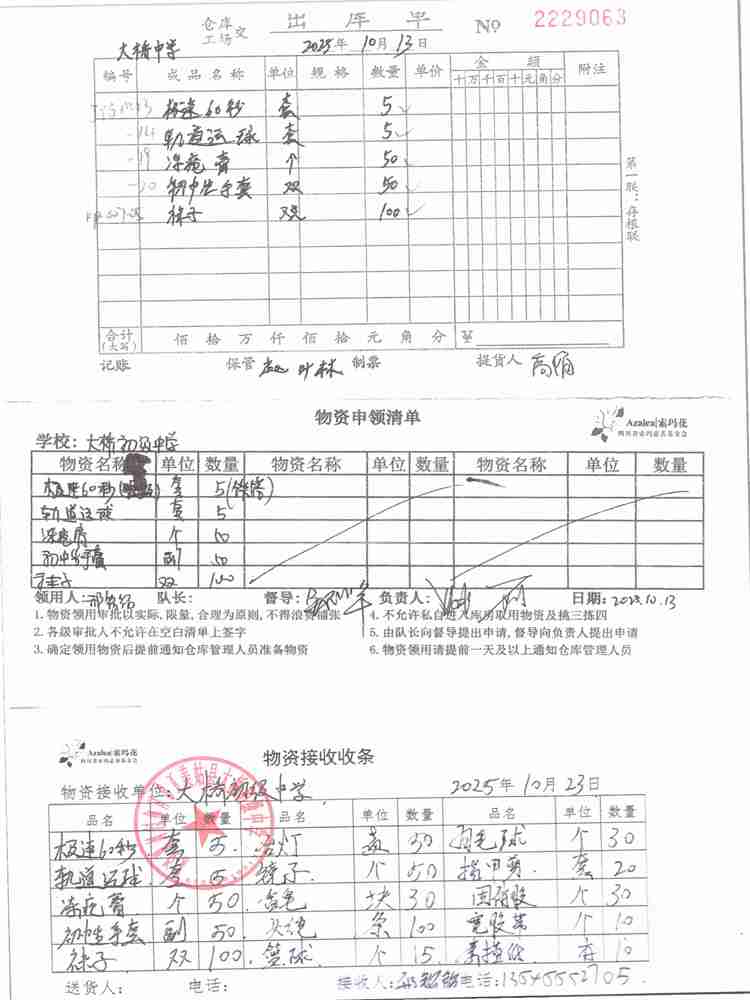 仓库
工场 交 出库单 № 2229063
大桥中学 2025年10月13日
编号 成品名称 单位 规格 数量 单价 金额 附注
十万千百十元角分
极速60秒 套 5
轨道运球 套 5
冻疮膏 个 50
初中生手套 双 50
袜子 双 100
第一联:存根联
合计(大写) 佰拾万仟佰拾元角分 ¥
记账 保管 制票 提货人
物资申领清单
Azalea|索玛花
四川省索玛慈善基金会
学校:大桥初级中学
物资名称 单位 数量 物资名称 单位 数量 物资名称 单位 数量
极速60秒 套 5
轨道运球 套 5
冻疮膏 个 50
初中生手套 副 50
袜子 双 100
领用人: 队长: 督导: 负责人: 日期:2025.10.13
1.物资领用审批以实际,限量,合理为原则,不得浪费铺张
4.不允许私自进入库房取用物资及挑三拣四
2.各级审批人不允许在空白清单上签字
5.由队长向督导提出申请,督导向负责人提出申请
3.确定领用物资后提前通知仓库管理人员准备物资
6.物资领用请提前一天及以上通知仓库管理人员
Azalea|索玛花
四川省索玛慈善基金会
物资接收收条
物资接收单位:大桥初级中学 2025年10月23日
品名 单位 数量 品名 单位 数量 品名 单位 数量
极速60秒 套 5 台灯 盏 50 羽毛球 个 30
轨道运球 套 5 镜子 个 50 指甲剪 套 20
冻疮膏 个 50 香皂 块 30 固体胶 个 30
初中生手套 副 50 头绳 条 100 宽胶带 个 10
袜子 双 100 篮球 个 15
送货人: 电话: 接收人: 电话:13545552705